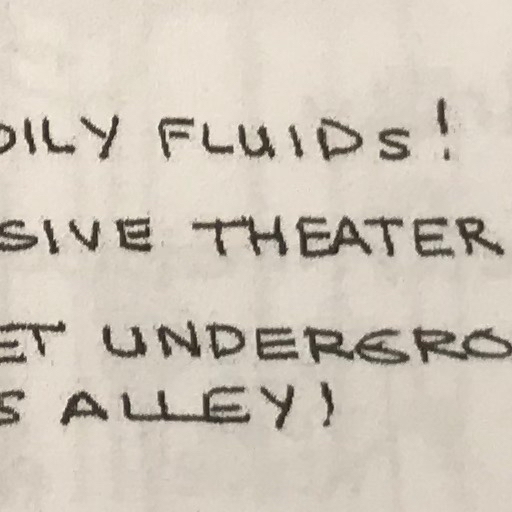 DILY FLUIDS!
SIVE THEATER
ET UNDERGRO
S ALLEY!